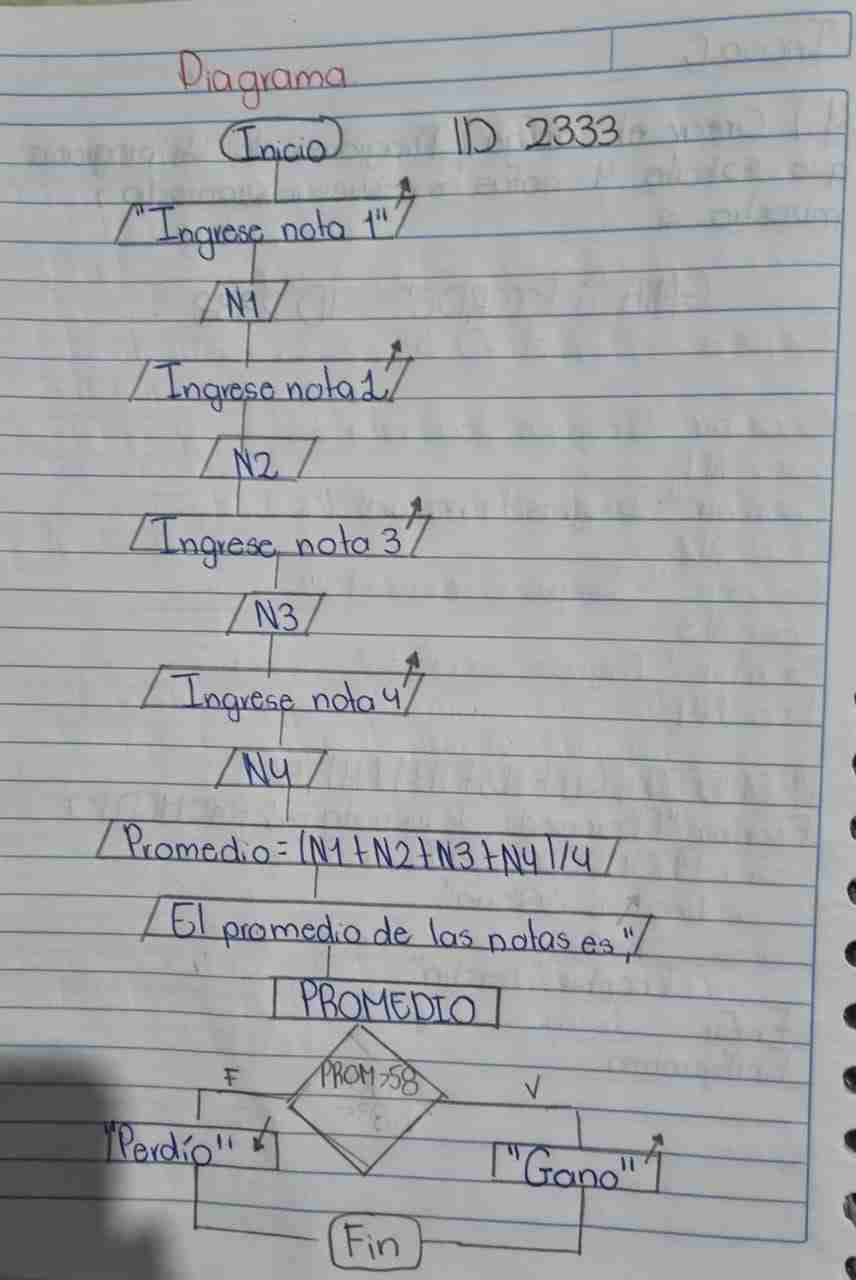 Diagrama
Inicio ID 2333
"Ingrese nota 1"
N1
Ingrese nota 2
N2
Ingrese nota 3
N3
Ingrese nota 4
N4
Promedio = (N1+N2+N3+N4)/4
El promedio de las notas es",
PROMEDIO
PROM>58
F V
"Perdío" "Gano"
Fin